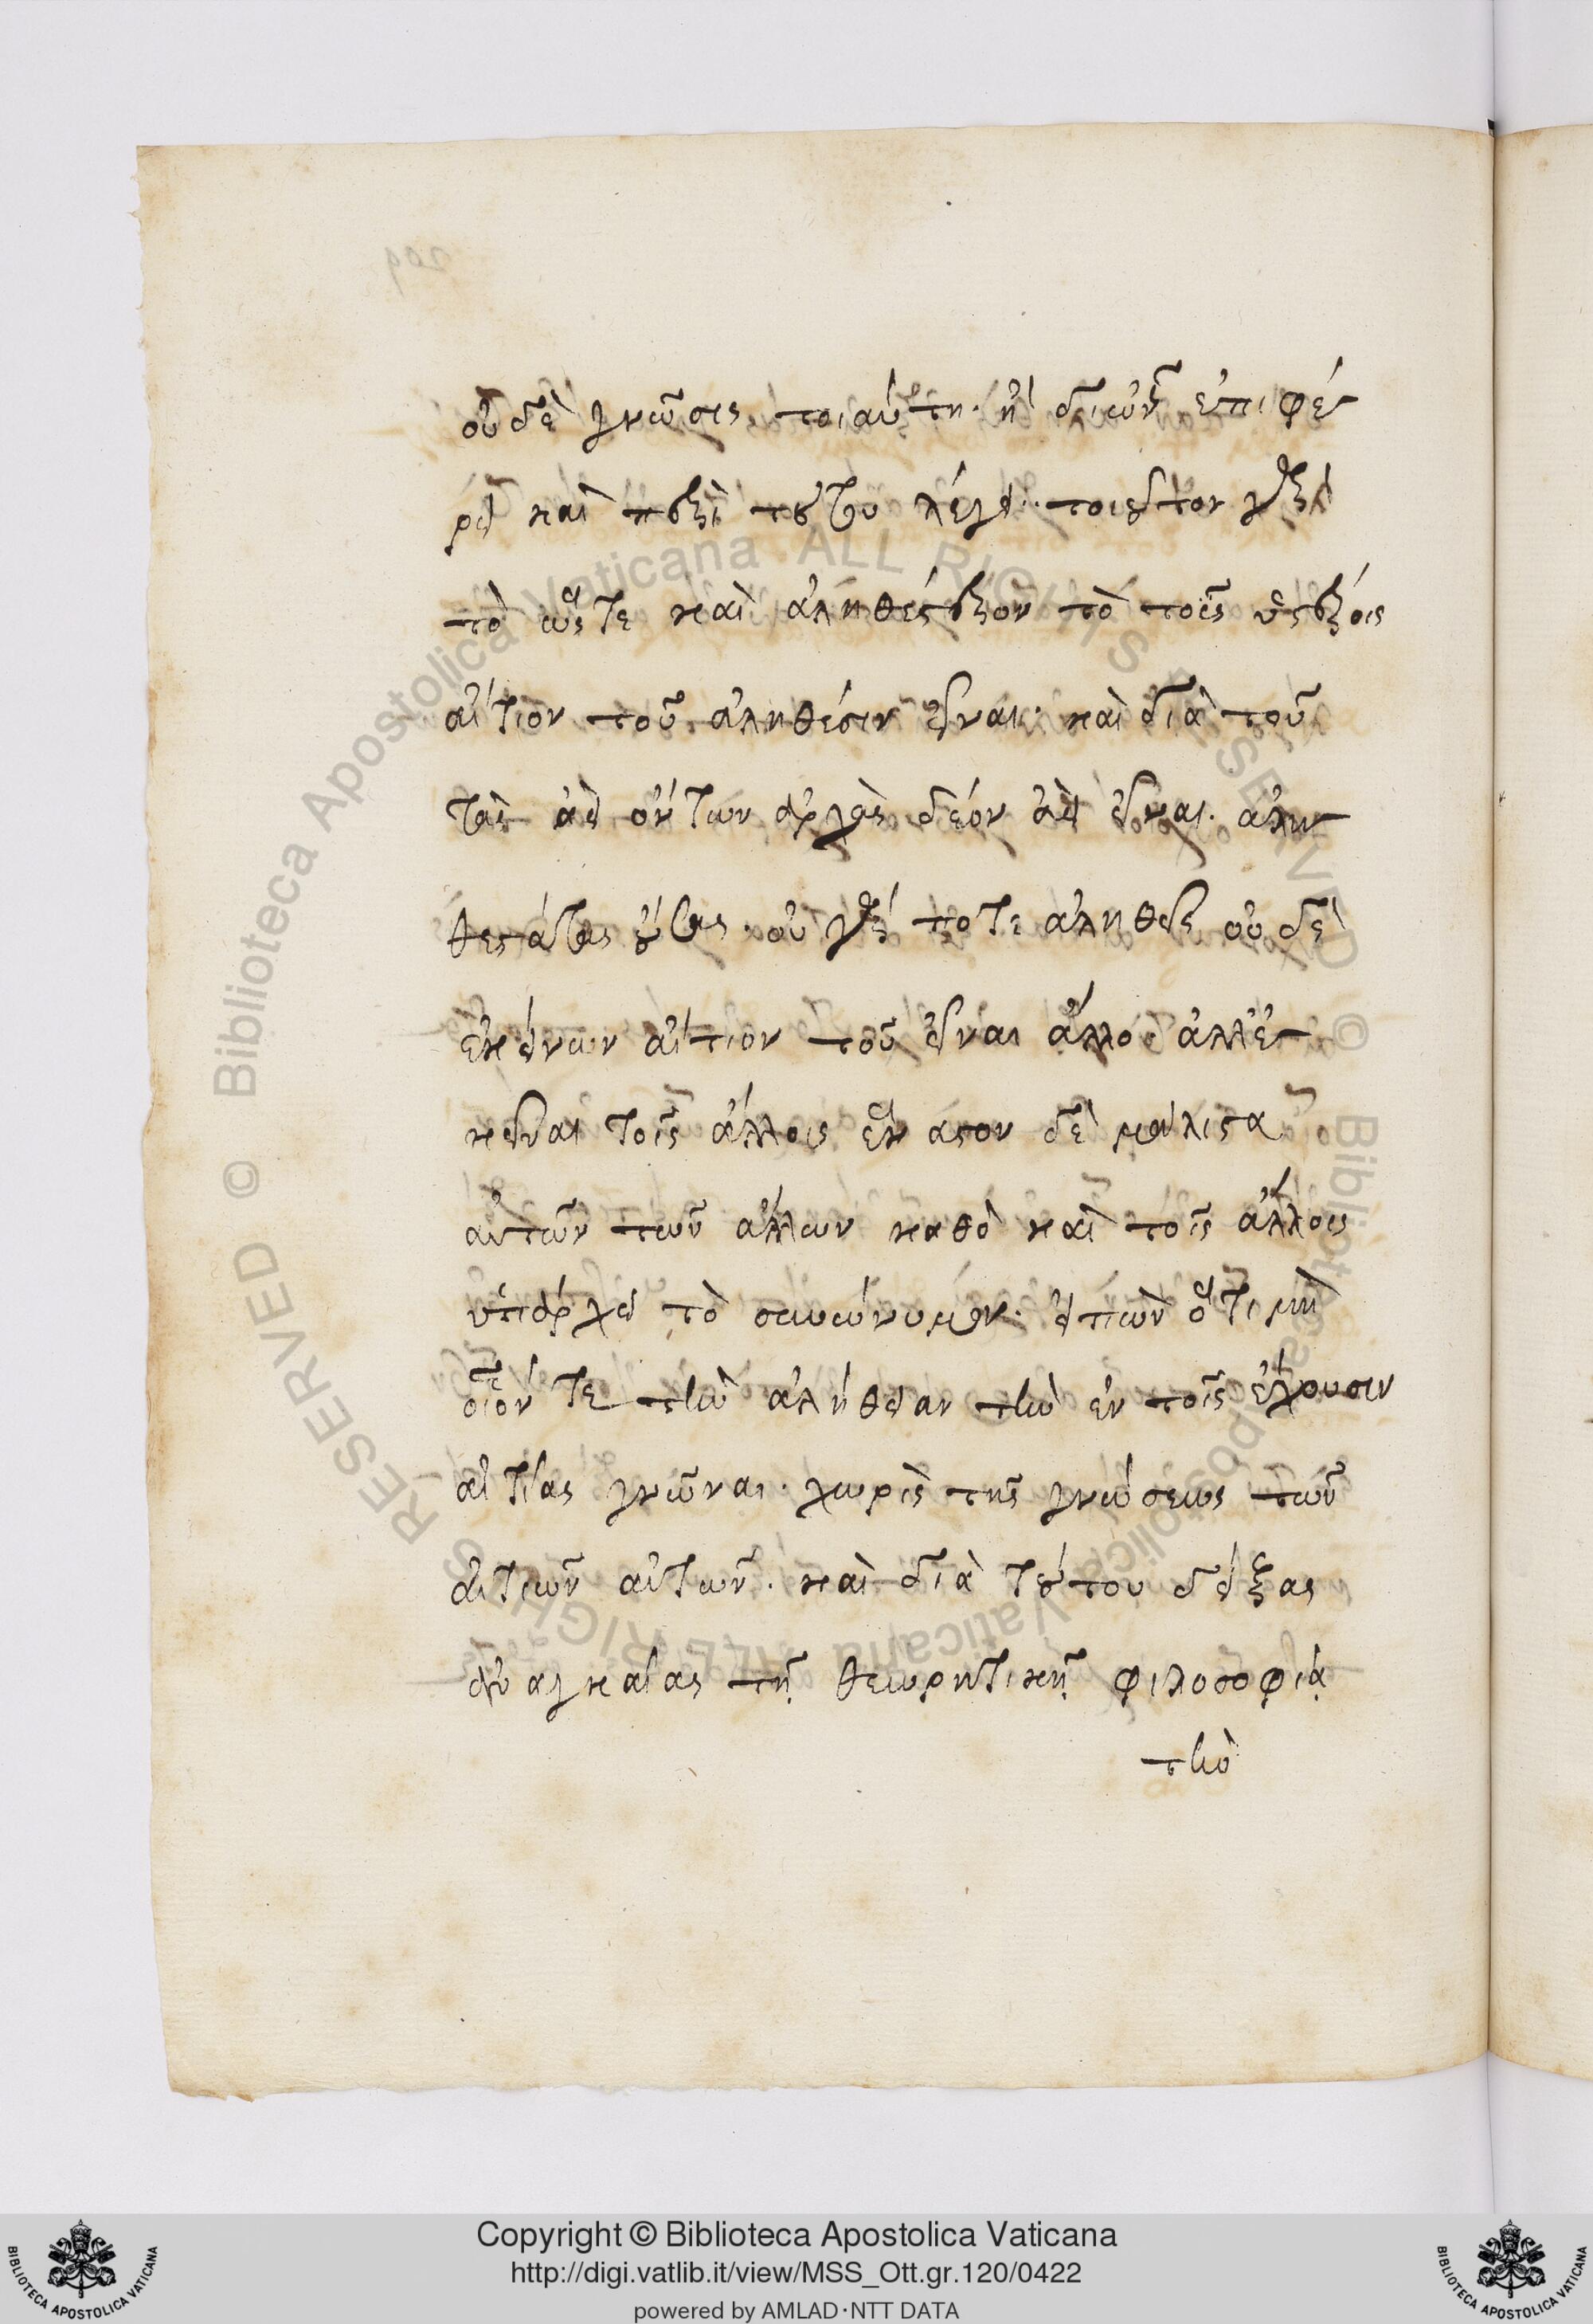 οὐδὲ γνῶσις τοιαύτη. ἢ διὧν ἐπιφέ
ρει καὶ περὶ τούτου λέγει. τοιοῦτον γὰρ
τὸ ὥστε καὶ ἀληθέστερον τὸ τοῖς ὑστέροις
αἴτιον τοῦ ἀληθέσιν εἶναι. καὶ διὰ τοῦ
τὰς ἀεὶ ὄντων ἀρχὰς δέον ἀεὶ εἶναι. ἀλη
θεστάτας οὔσας. οὐ γάρ ποτε ἀληθεῖς οὐδὲ
ἐκείνων αἴτιον τοῦ εἶναι ἄλλο. ἀλλ' ἐ
κεῖναι τοῖς ἄλλοις ἕκαστον δὲ μάλιστα
αὐτῶν τῶν ἄλλων καθὸ καὶ τοῖς ἄλλοις
ὑπάρχει τὸ συνώνυμον. εἰπὼν ὅτι μὴ
οἷόν τε τὴν ἀλήθειαν τὴν ἐν τοῖς ἔχουσιν
αἰτίας γνῶναι. χωρὶς τῆς γνώσεως τῶν
αἰτιῶν αὐτῶν. καὶ διὰ τούτου δείξας
ἀναγκαίας τῇ θεωρητικῇ φιλοσοφίᾳ
τὴν
Copyright © Biblioteca Apostolica Vaticana
http://digi.vatlib.it/view/MSS_Ott.gr.120/0422
powered by AMLAD·NTT DATA